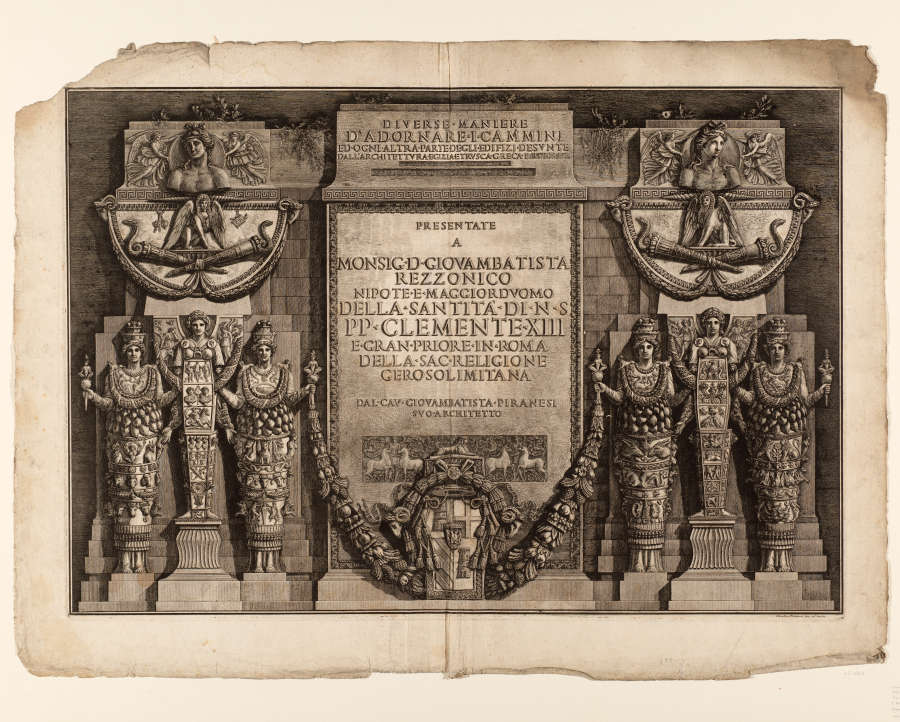 DIVERSE·MANIERE
D'ADORNARE·I·CAMMINI
ED·OGNI·ALTRA·PARTE·DEGLI·EDIFIZJ·DESUNTE
DALL'ARCHITETTVRA·EGIZIA·ETRVSCA·GRECA·E
PRESENTATE
A
MONSIG·D·GIOVAMBATISTA
REZZONICO
NIPOTE·E·MAGGIORDVOMO
DELLA·SANTITÀ·DI·N·S
PP·CLEMENTE·XIII
E·GRAN·PRIORE·IN·ROMA
DELLA·SAC·RELIGIONE
GEROSOLIMITANA
DAL·CAV·GIOVAMBATISTA·PIRANESI
SVO·ARCHITETTO